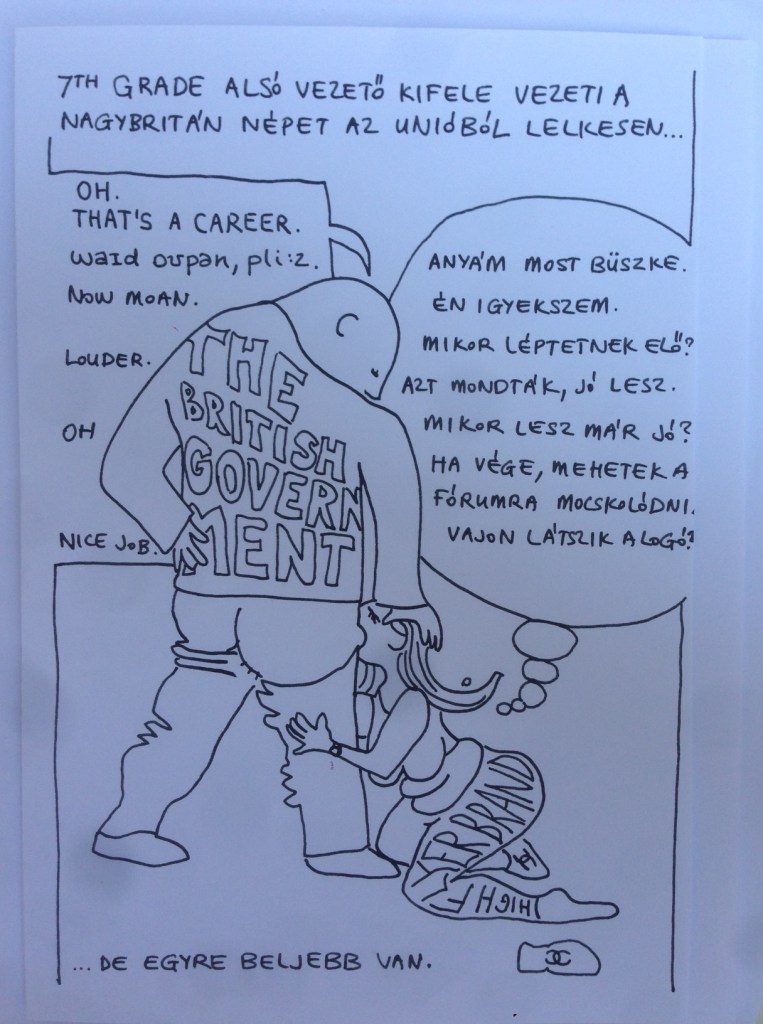 7TH GRADE ALSÓ VEZETŐ KIFELE VEZETI A
NAGYBRITÁN NÉPET AZ UNIÓBÓL LELKESEN...
OH.
THAT'S A CAREER.
waɪd oʊpən, pli:z.
NOW MOAN.
LOUDER.
OH
NICE JOB.
ANYÁM MOST BÜSZKE.
ÉN IGYEKSZEM.
MIKOR LÉPTETNEK ELŐ?
AZT MONDTÁK, JÓ LESZ.
MIKOR LESZ MÁR JÓ?
HA VÉGE, MEHETEK A
FÓRUMRA MOCSKOLÓDNI.
VAJON LÁTSZIK A LOGÓ?
THE
BRITISH
GOVERN
MENT
HIGH
...DE EGYRE BELJEBB VAN.